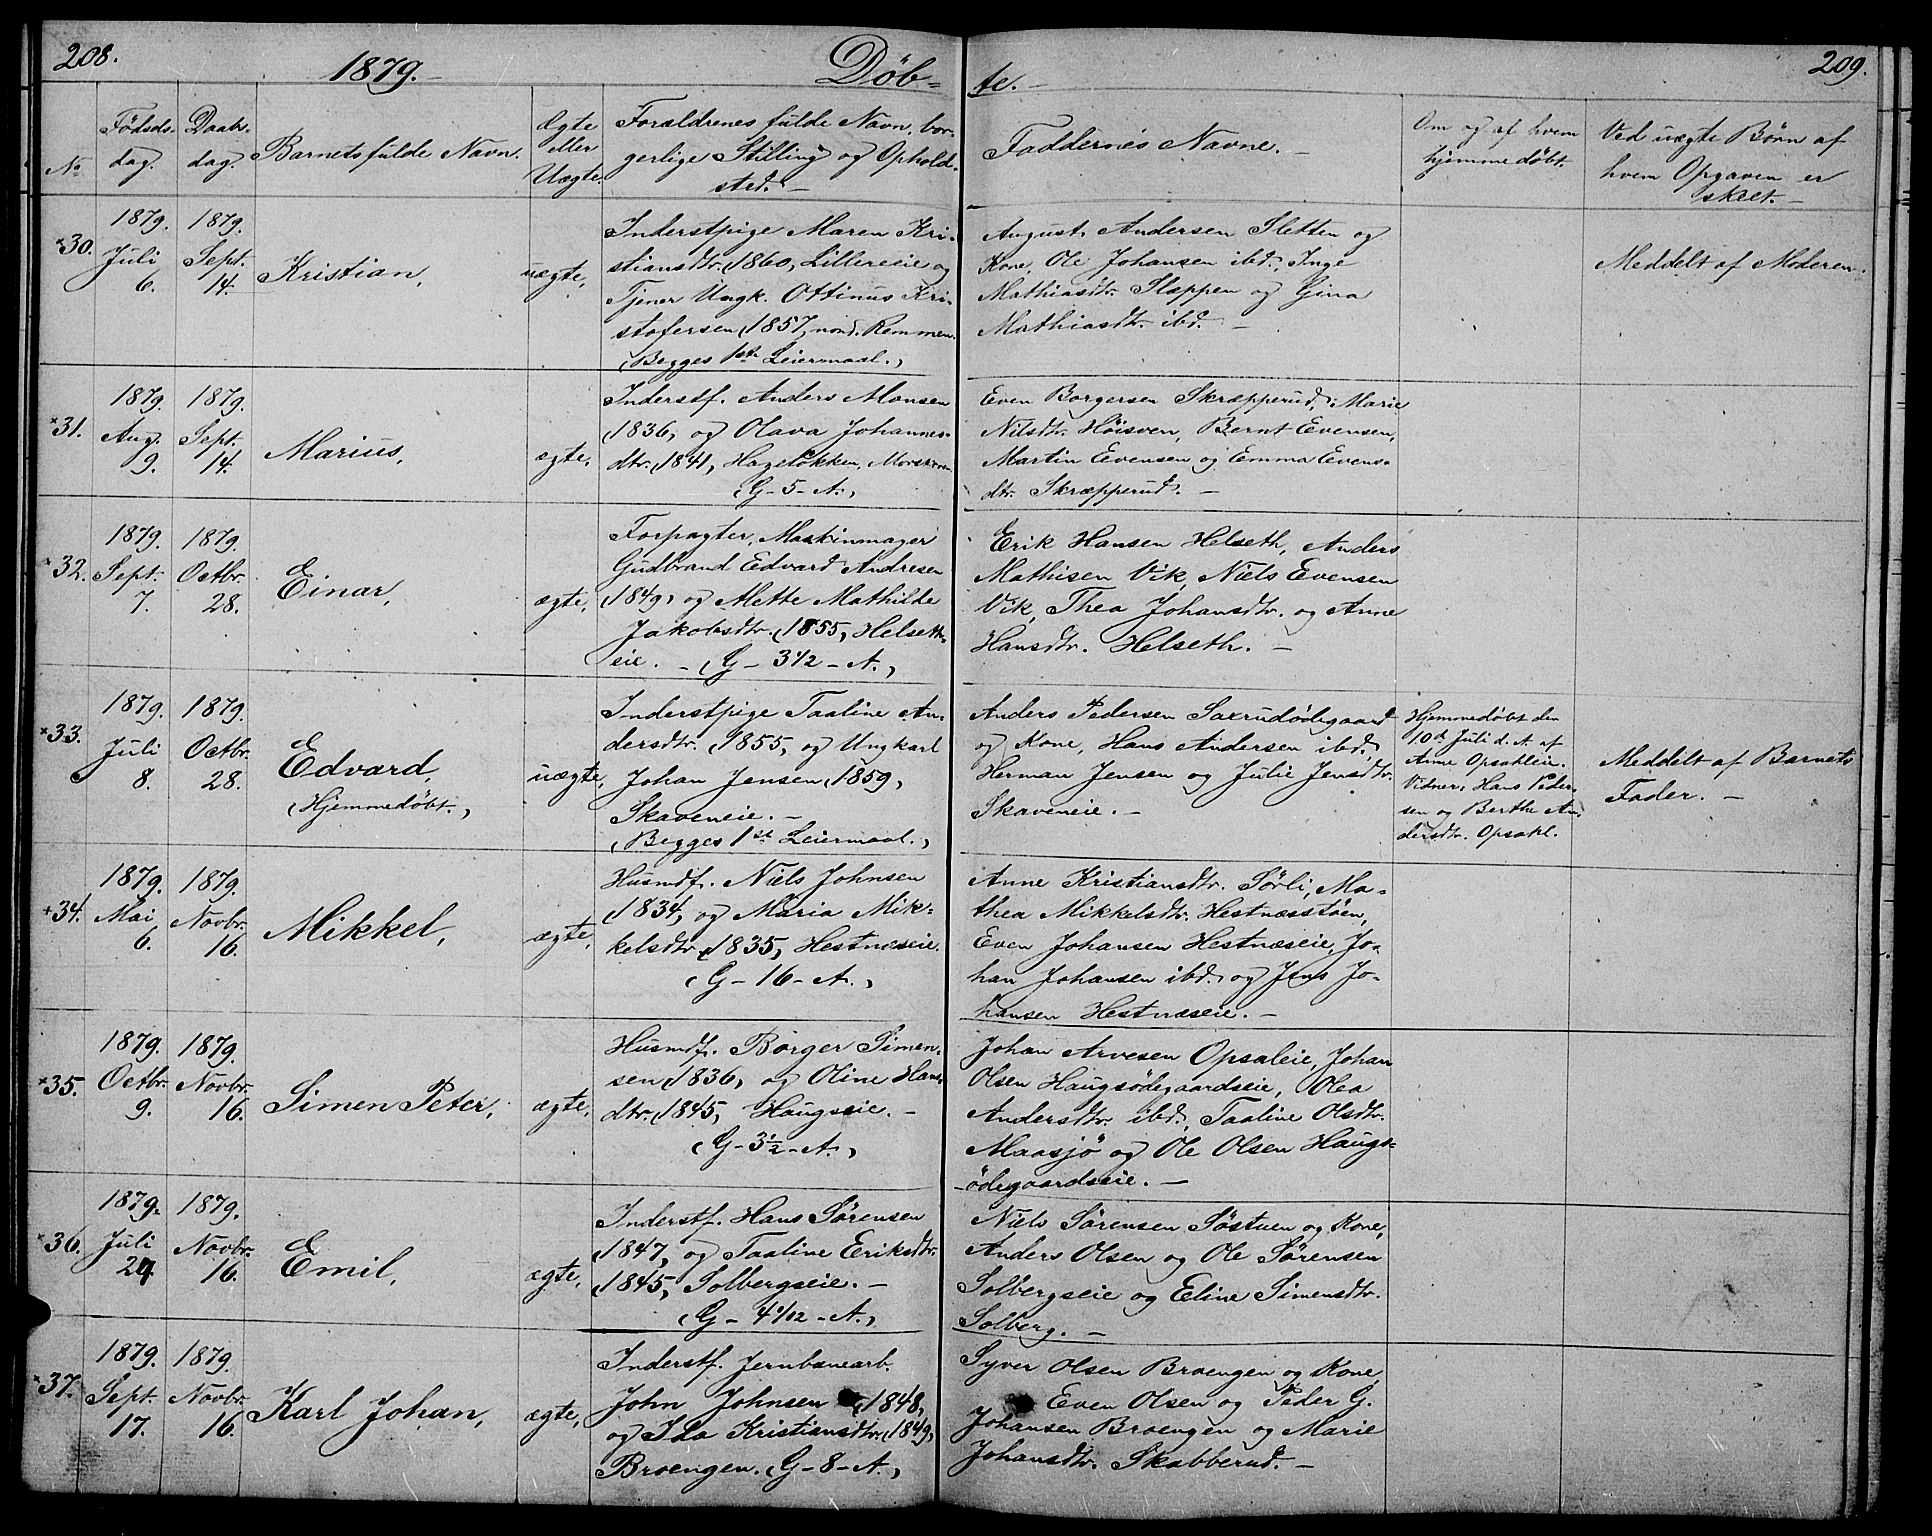 208.
1879.
Døb-
te.
209.
No
Fødsels-
dag.
Daabs-
dag.
Barnets fulde Navn.
Ægte
eller
Uægte.
Forældrenes fulde Navn, bor-
gerlige Stilling og Ophold-
sted.
Faddernes Navne.
Om og af hvem
hjemmedøbt.
Ved uægte Børn af
hvem Opgaven er
skeet.
×30.
1879.
Juli
6.
1879.
Sept.
14.
Kristian,
uægte,
Inderstpige Maren Kri-
stiansdtr. (1860, Lillereie og
Tjener Ungk. Ottinus Kri-
stofersen (1857, nord. Remmen.
(Begges 1ste Leiermaal.)
August Andersen Sletten og
Kone, Ole Johansen ibd., Inge
Mathiasdtr. Slæppen og Gina
Mathiasdtr. ibd.
Meddelt af Moderen.
×31.
1879.
Aug.
9.
1879.
Sept.
14.
Marius,
ægte,
Inderstf. Anders Monsen
(1836, og Olava Johannes-
dtr. (1841, Hageløkken,
(G-5-A.)
Even Borgersen Skræpperud, Marie
Nilsdtr. Høisveen, Bernt Evensen,
Martin Evensen og Emma Evens-
dtr. Skræpperud.
×32.
1879.
Sept.
7.
1879.
Octbr.
28.
Einar,
ægte,
Forpagter, Maskinmager
Gudbrand Edvard Andresen
(1849, og Mette Mathilde
Jakobsdtr. (1855, Helseth-
eie. - (G-3 1/2-A.)
Erik Hansen Helseth, Anders
Mathisen Vik, Niels Evensen
Vik, Thea Johansdtr. og Anne
Hansdtr. Helseth.
×33.
1879.
Juli
8.
1879.
Octbr.
28.
Edvard,
(Hjemmedøbt.)
uægte,
Inderstpige Taaline An-
dersdtr. (1855, og Ungkarl
Johan Jensen (1859,
Skaveneie.
(Begges 1st Leiermaal.)
Anders Pedersen Saxrudødegaard
og Kone, Hans Andersen ibd.,
Herman Jensen og Julie Jensdtr.
Skaveneie.
Hjemmedøbt den
10de Juli d. A. af
Anne Opsakleie.
Vidner: Hans Peder-
sen og Berthe An-
dersdtr. Opsakl.
Meddelt af Barnets
Fader.
+34.
1879.
Mai
6.
1879.
Novbr.
16.
Mikkel,
ægte,
Husmdf. Niels Johnsen
(1834, og Maria Mik-
kelsdtr. (1835, Hestnæseie.
(G-16-A.)
Anne Kristiansdtr. Sørli, Ma-
thea Mikkelsdtr. Hestnæsstøen,
Even Johansen Hestnæseie, Jo-
han Johansen ibd. og Jens Jo-
hansen Hestnæseie.
×35.
1879.
Octbr.
9.
1879.
Novbr.
16.
Simen Peter,
ægte,
Husmdf. Borger Simen-
sen (1836, og Oline Hans-
dtr. (1845, Haugseie.
(G-3 1/2-A.)
Johan Arvesen Opsaleie, Johan
Olsen Haugsødegaardseie, Olea
Andersdtr. ibd., Taaline Olsdtr.
Maasjø og Ole Olsen Haugs-
ødegaardseie.
×36.
1879.
Juli
24.
1879.
Novbr.
16.
Emil,
ægte,
Inderstf. Hans Sørensen
(1847, og Taaline Eriksdtr.
(1845, Solbergseie.
(G-4 1/12-A.)
Niels Sørensen Søstuen og Kone,
Anders Olsen og Ole Sørensen
Solbergseie og Eline Simensdtr.
Solberg.
×37.
1879.
Sept.
17.
1879.
Novbr.
16.
Karl Johan,
ægte,
Inderstf. Jernbanearb.
John Johnsen (1848,
og Ida Kristiansdtr. (1849,
Broengen. (G-8-A.)
Syver Olsen Broengen og Kone,
Even Olsen og Peder G.
Johansen Broengen og Marie
Johansdtr. Skabberud.